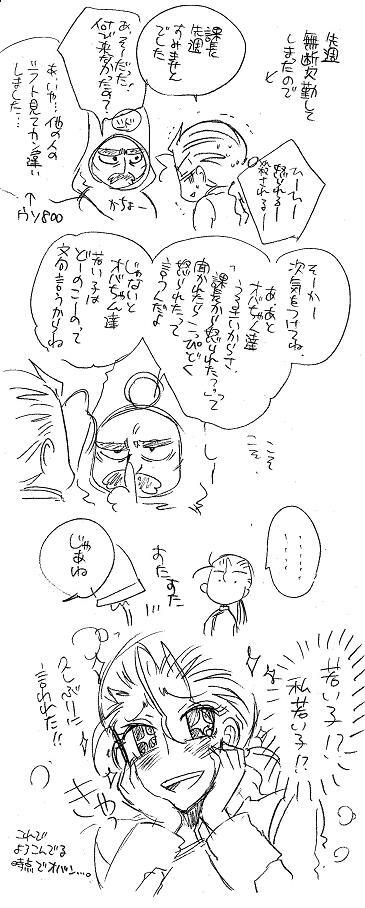 先週
無断欠勤して
しまたので
課長
先週
すみません
でした
あ、そーだった!
何で来なかったの?
ひぃーー
怒れるー
殺されるー
かちょー
あ、いや…他の人の
シフト見てカン違い
しました…
↑
ウソ800
そーかー
次気をつけてね。
あ、あと
オバちゃん達
うるさいからさ、
「課長から怒られた?」って
聞かれたらこっぴどく
怒られたって
言うんだよ
じゃないと
オバちゃん達
若い子は
どーのこーのって
文句言うからね。
こそ
こそ
………
すたすた
じゃあね
若い子!?
私若い子!?
久しぶりに
言われた!!
きゃっ
これで
よろこんでる
時点でオバン…。